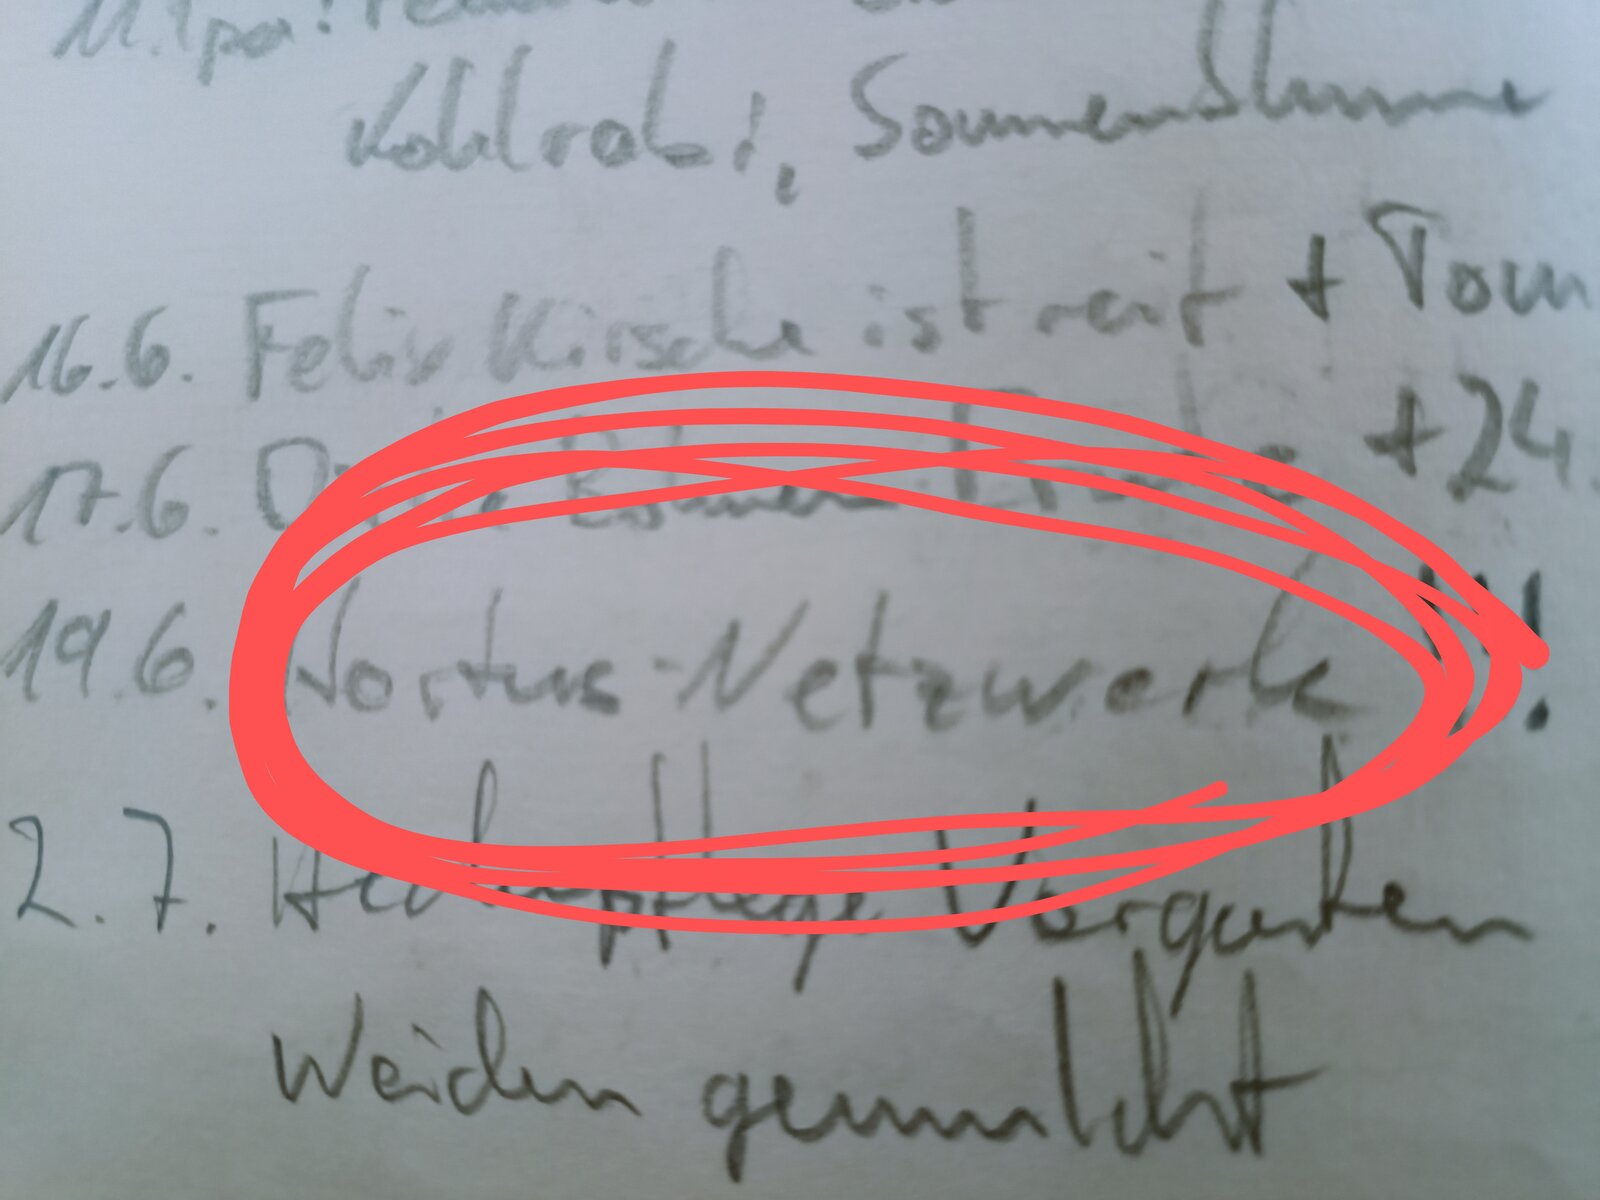 Kohlrabi, Sonnenblume
16.6. Felix Kirsche ist reif + Tom
17.6. Blumen +24.
19.6. Nortus-Netzwerk !!!
2.7. Heckenpflege Vorgarten
Weiden gemulcht